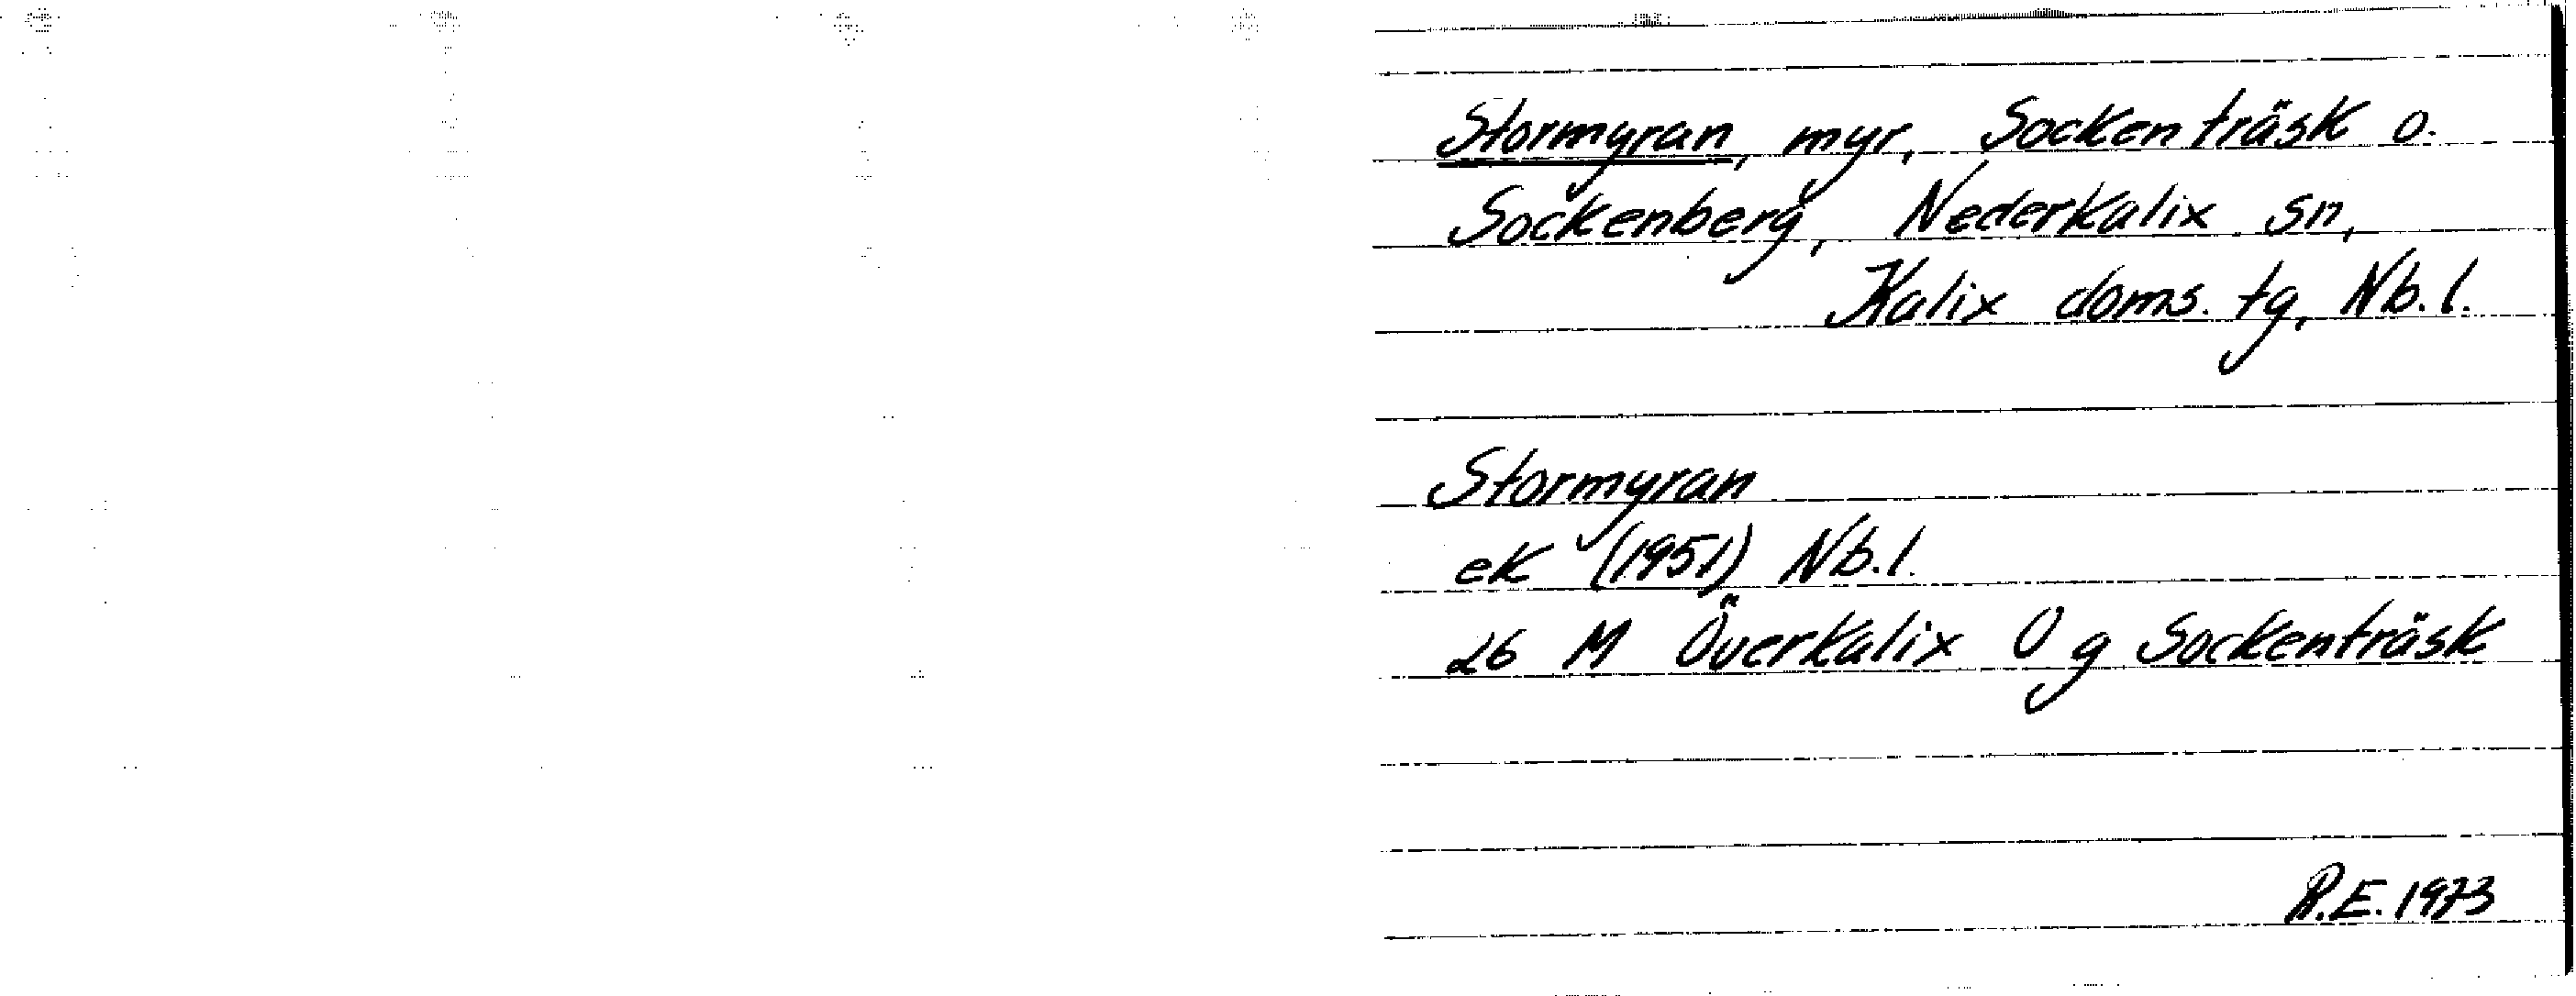 Stormyran, myr, Sockenträsk o.
Sockenberg, Nederkalix sn,
Kalix doms. tg, Nb.l.
Stormyran
ek (1951) Nb.l.
26 M Överkalix O g Sockenträsk
R.E. 1973